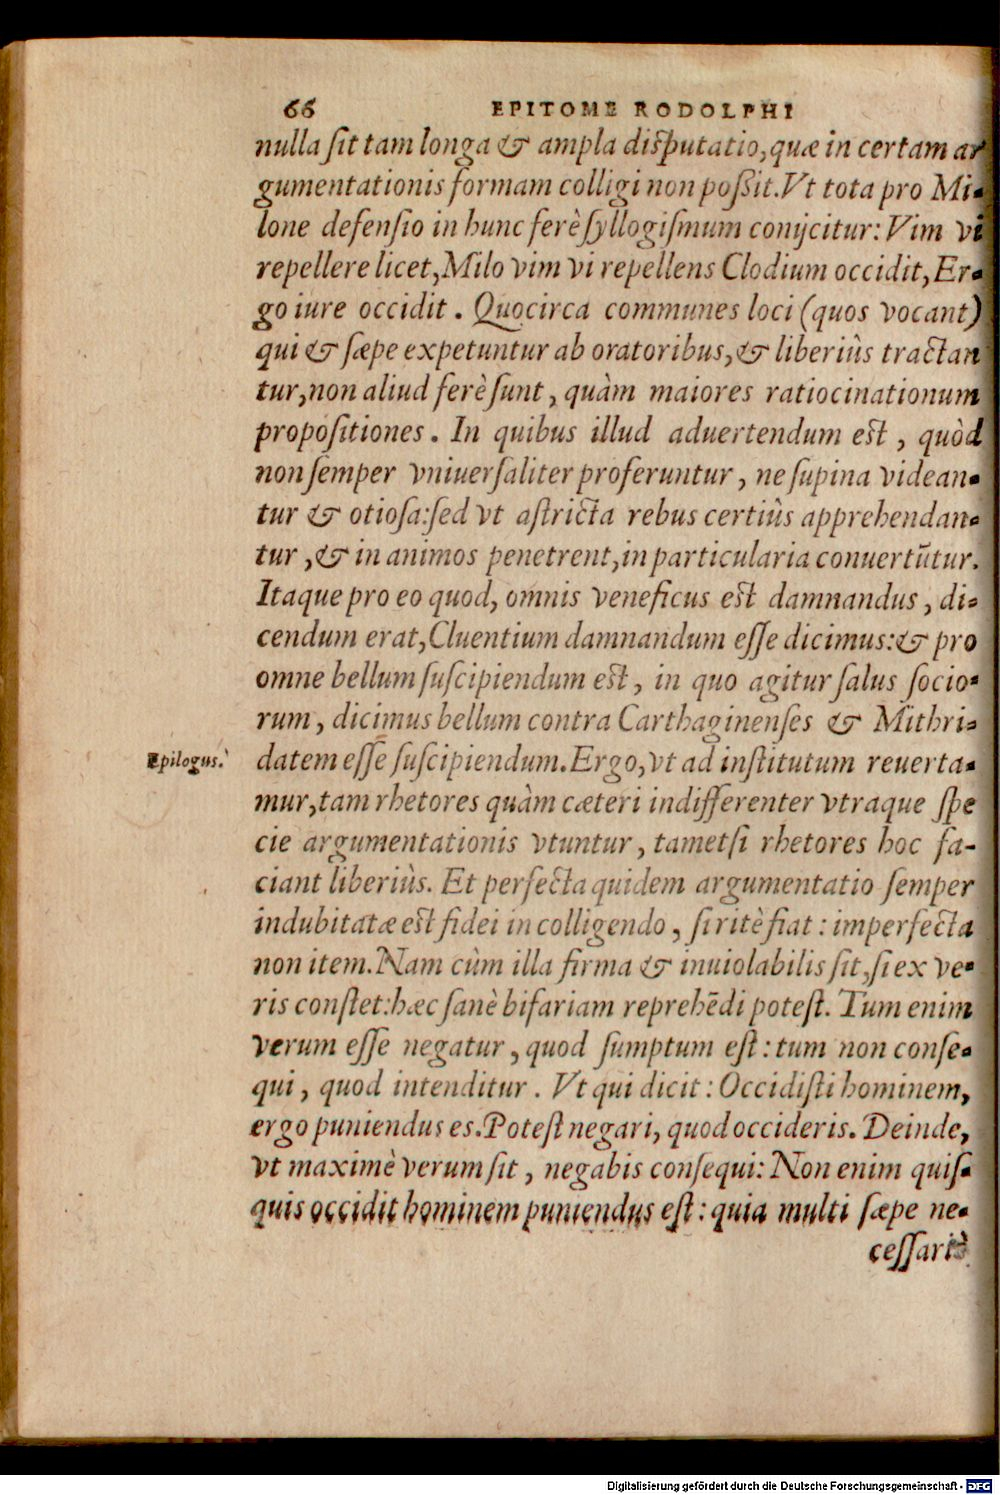 66 EPITOME RODOLPHI
nulla ſit tam longa & ampla diſputatio, quæ in certam ar
gumentationis formam colligi non poßit. Vt tota pro Mi-
lone defenſio in hunc ferè ſyllogiſmum conijcitur: Vim vi
repellere licet, Milo vim vi repellens Clodium occidit, Er-
go iure occidit. Quocirca communes loci (quos vocant)
qui & ſæpe expetuntur ab oratoribus, & liberiùs tractan
tur, non aliud ferè ſunt, quàm maiores ratiocinationum
propoſitiones. In quibus illud aduertendum est, quòd
non ſemper vniuerſaliter proferuntur, ne ſupina videan-
tur & otioſa: ſed vt aſtricta rebus certiùs apprehendan-
tur, & in animos penetrent, in particularia conuertũtur.
Itaque pro eo quod, omnis veneficus est damnandus, di-
cendum erat, Cluentium damnandum eſſe dicimus: & pro
omne bellum ſuſcipiendum est, in quo agitur ſalus ſocio-
rum, dicimus bellum contra Carthaginenſes & Mithri-
Epilogus. datem eſſe ſuſcipiendum. Ergo, vt ad inſtitutum reuerta-
mur, tam rhetores quàm cæteri indifferenter vtraque ſpe
cie argumentationis vtuntur, tametſi rhetores hoc fa-
ciant liberiùs. Et perfecta quidem argumentatio ſemper
indubitatæ est fidei in colligendo, ſi ritè fiat: imperfecta
non item. Nam cùm illa firma & inuiolabilis ſit, ſi ex ve-
ris conſtet: hæc ſanè bifariam reprehẽdi poteſt. Tum enim
verum eſſe negatur, quod ſumptum eſt: tum non conſe-
qui, quod intenditur. Vt qui dicit: Occidiſti hominem,
ergo puniendus es. Poteſt negari, quod occideris. Deinde,
vt maximè verum ſit, negabis conſequi: Non enim quiſ-
quis occidit hominem puniendus eſt: quia multi ſæpe ne-
ceſſariò
Digitalisierung gefördert durch die Deutsche Forschungsgemeinschaft - DFG